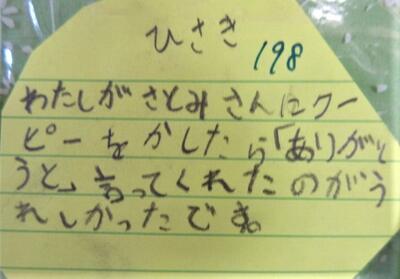 ひさき
198
わたしがさとみさんにクー
ピーをかしたら「ありがと
うと、言ってくれたのがう
れしかったです。